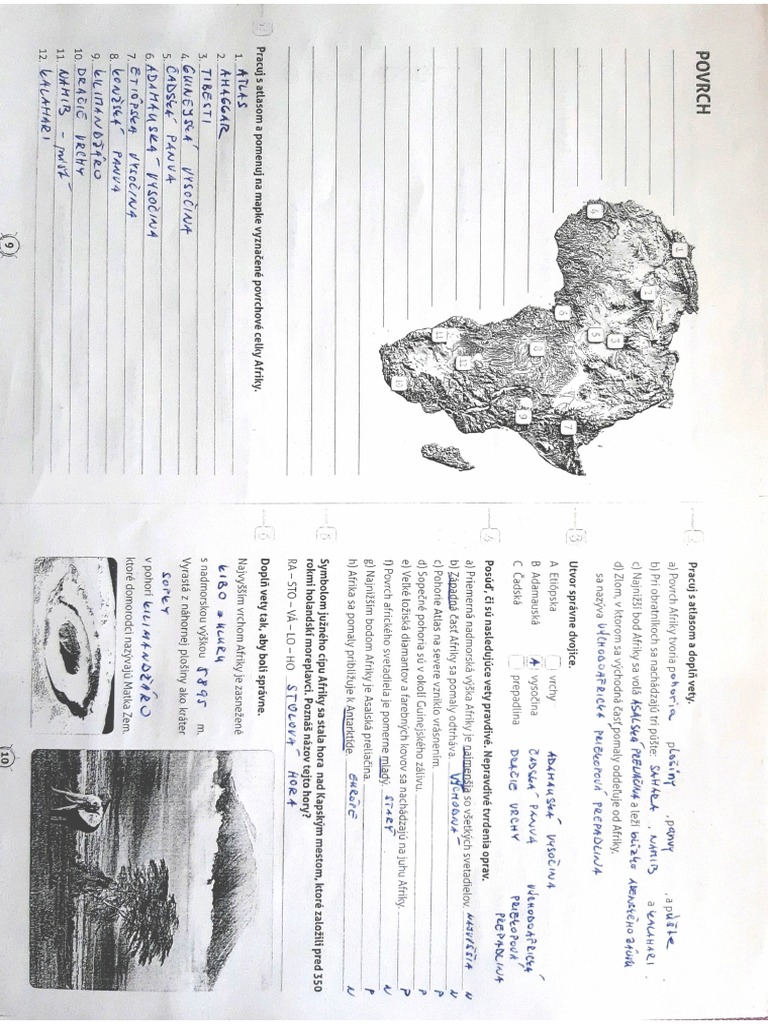 POVRCH
1 Pracuj s atlasom a pomenuj na mapke vyznačené povrchové celky Afriky.
1. ATLAS
2. AHAGGAR
3. TIBESTI
4. GUINEJSKÁ VYSOČINA
5. ČADSKÁ PANVA
6. ADAMAUSKÁ VYSOČINA
7. ETIÓPSKA VYSOČINA
8. KONŽSKÁ PANVA
9. KILIMANDŽÁRO
10. DRAČIE VRCHY
11. NAMIB - púšť
12. KALAHARI
9
2 Pracuj s atlasom a doplň vety.
a) Povrch Afriky tvoria pohoria, plošiny, panvy, a púšte
b) Pri obratníkoch sa nachádzajú tri púšte: SAHARA, NAMIB a KALAHARI.
c) Najnižší bod Afriky sa volá ASALSKÁ PRELIAČINA a leží blízko ADENSKÉHO ZÁLIVU
d) Zlom, v ktorom sa východná časť pomaly oddeľuje od Afriky,
sa nazýva VÝCHODOAFRICKÁ PRIEKOPOVÁ PREPADLINA
3 Utvor správne dvojice.
A Etiópska vrchy ADAMAUSKÁ VYSOČINA
B Adamauská A vysočina ČADSKÁ PANVA VÝCHODOAFRICKÁ
C Čadská prepadlina DRAČIE VRCHY PRIEKOPOVÁ
PREPADLINA
4 Posúď, či sú nasledujúce vety pravdivé. Nepravdivé tvrdenia oprav.
a) Priemerná nadmorská výška Afriky je najmenšia so všetkých svetadielov. NAJVÄČŠIA N
b) Západná časť Afriky sa pomaly odtrháva. VÝCHODNÁ N
c) Pohorie Atlas na severe vzniklo vrásnením. P
d) Sopečné pohoria sú v okolí Guinejského zálivu. P
e) Veľké ložiská diamantov a farebných kovov sa nachádzajú na juhu Afriky. P
f) Povrch afrického svetadiela je pomerne mladý. STARÝ N
g) Najnižším bodom Afriky je Asalská preliačina. P
h) Afrika sa pomaly približuje k Antarktíde. EURÓPE N
5 Symbolom južného cípu Afriky sa stala hora nad Kapským mestom, ktoré založili pred 350
rokmi holandskí moreplavci. Poznáš názov tejto hory?
RA – STO – VÁ – LO – HO STOLOVÁ HORA
6 Doplň vety tak, aby boli správne.
Najvyšším vrchom Afriky je zasnežené
KIBO = UHURU
s nadmorskou výškou 5895 m.
Vyrastá z náhornej plošiny ako kráter
SOPKY
v pohorí KILIMANDŽÁRO
ktoré domorodci nazývajú Matka Zem.
10